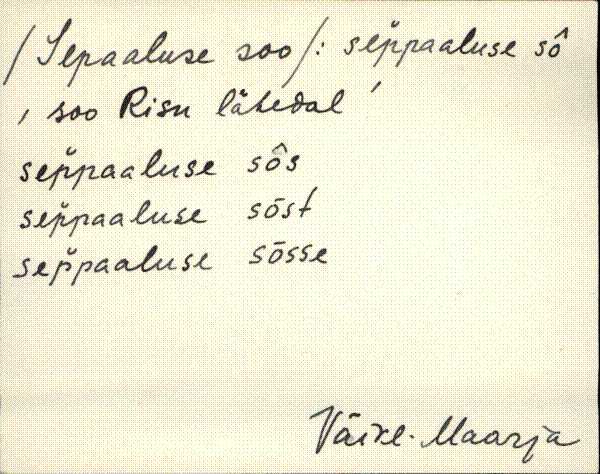 /Sepaaluse soo/: sep̆paaluse sô
, soo Risu lähedal ’
sep̆paaluse sôs
sep̆paaluse sōst
sep̆paaluse sōsse
Väike-Maarja